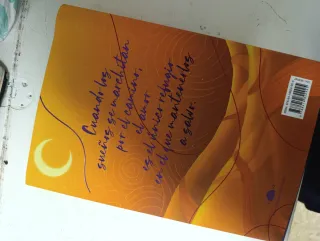 Cuando los
sueños se marchitan
por el camino,
el amor
es el único refugio
en el que mantenerlos
a salvo.